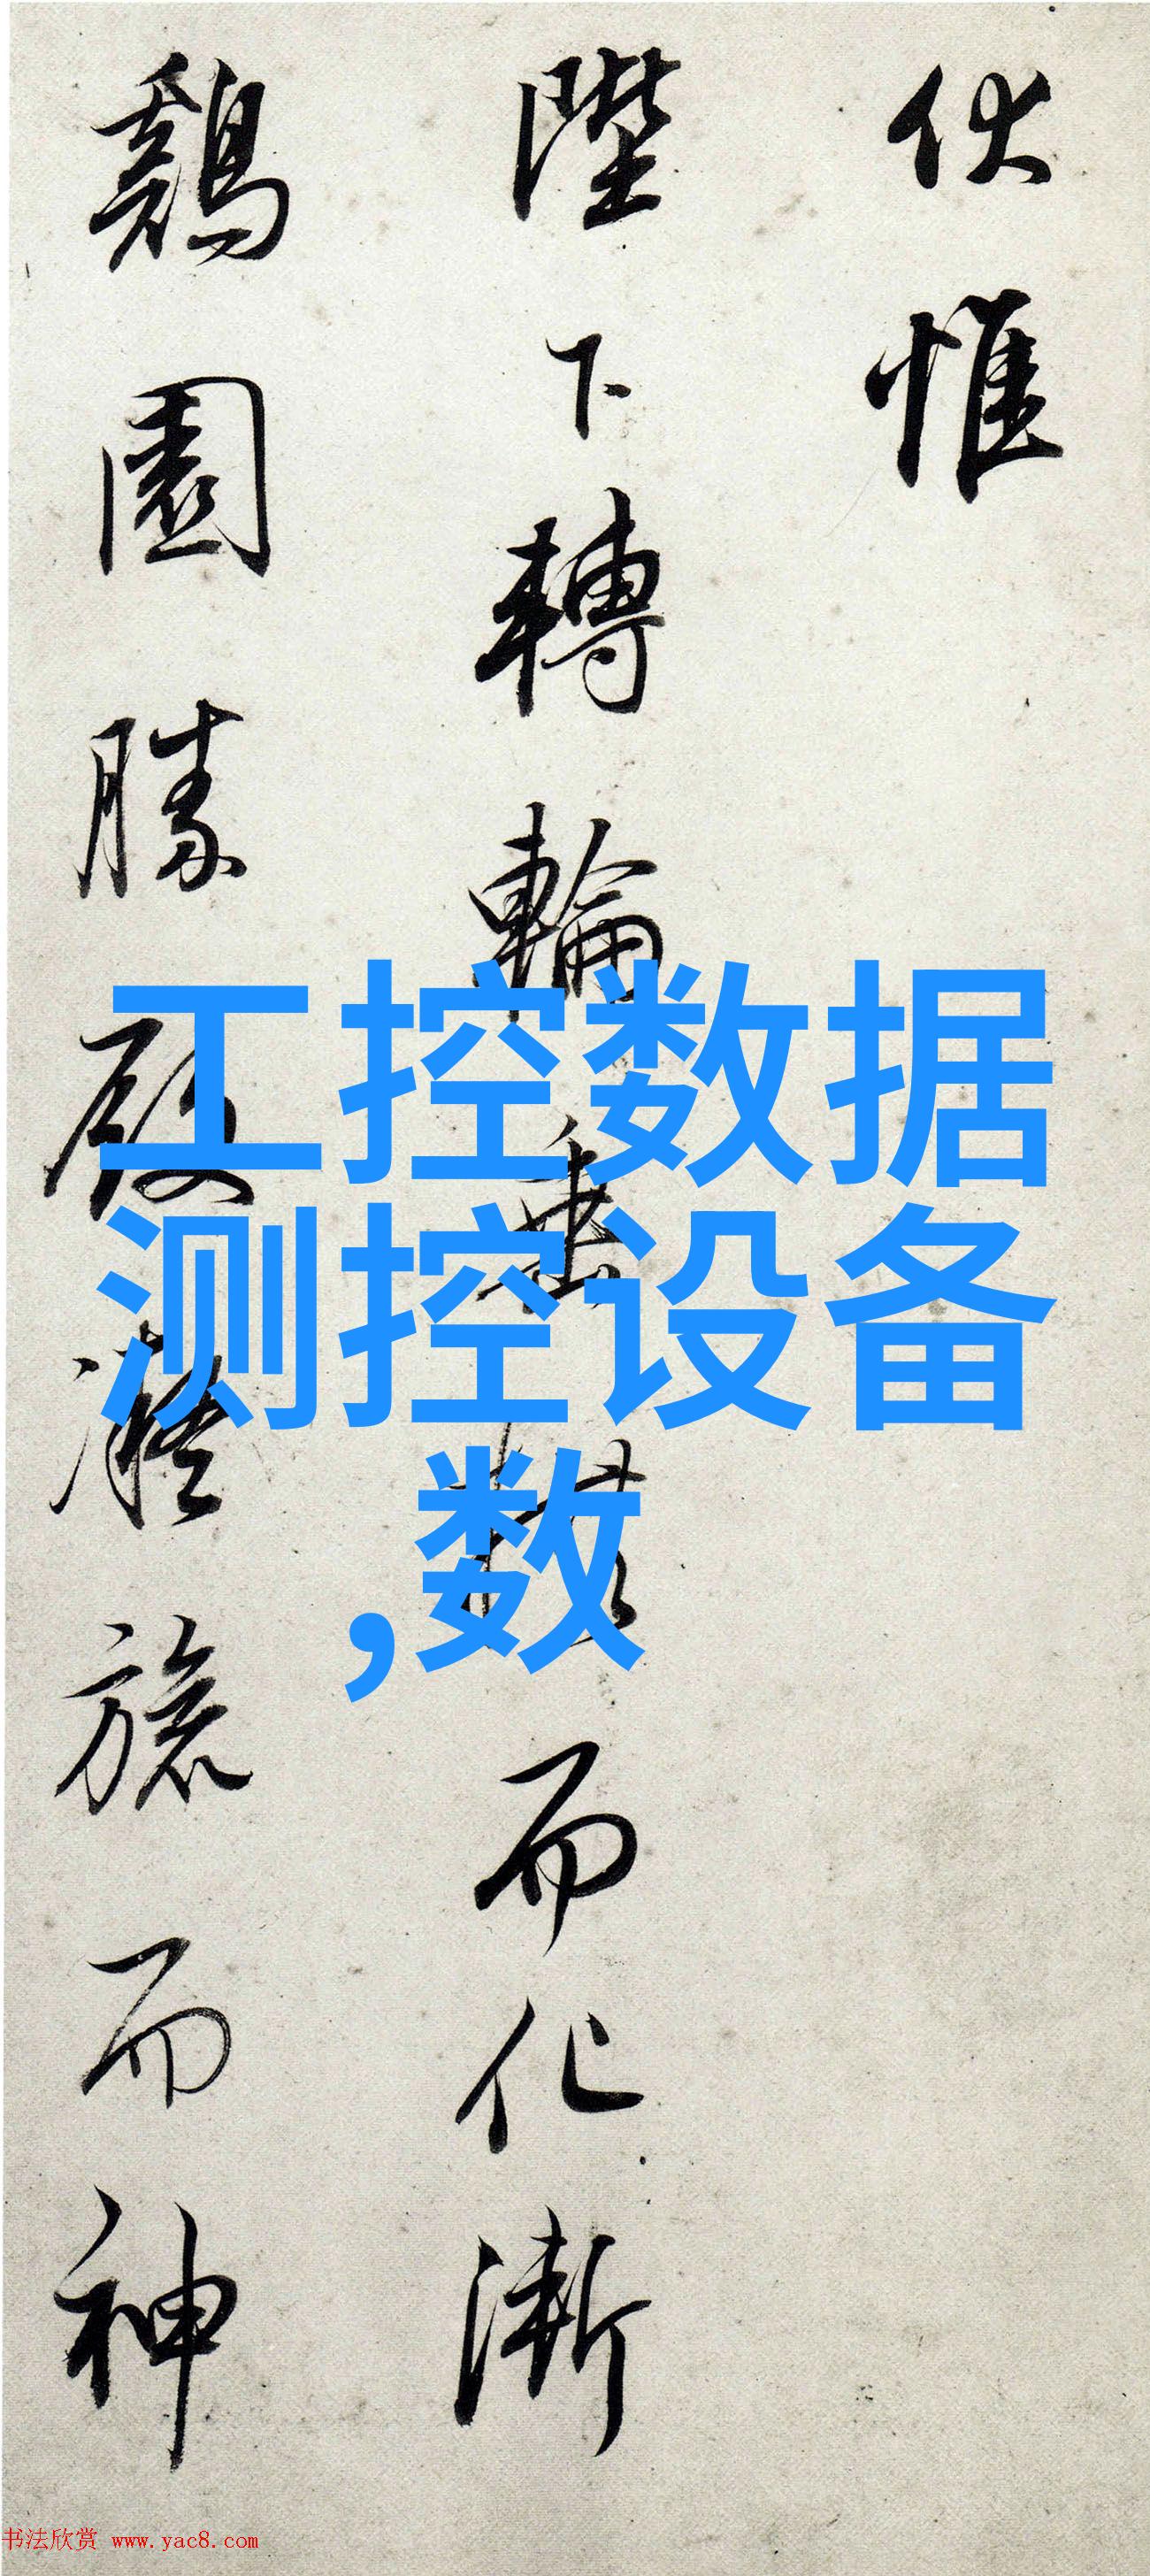 伏惟
陛下轉輪垂拱而化漸
鷄園勝殿凝旒而神
工控数据
测控设备
,数
书法欣赏 www.yac8.com